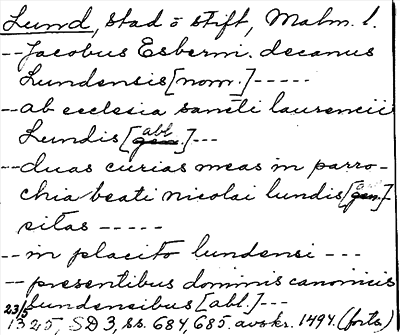 Lund, stad o stift, Malm. l.
-- Jacobus Esberni. decanus
Lundensis [nom.] -----
-- ab ecclesia sancti laurencii
Lundis [abl.] ---
-- duas curias meas in parro-
chia beati nicolai lundis [gen.]-
sitas -----
-- in placito lundensi ---
-- presentibus dominis canonicis
lundensibus [abl.] ---
23/5 1325, SD 3, ss. 684, 685. avskr. 1494. (forts.)